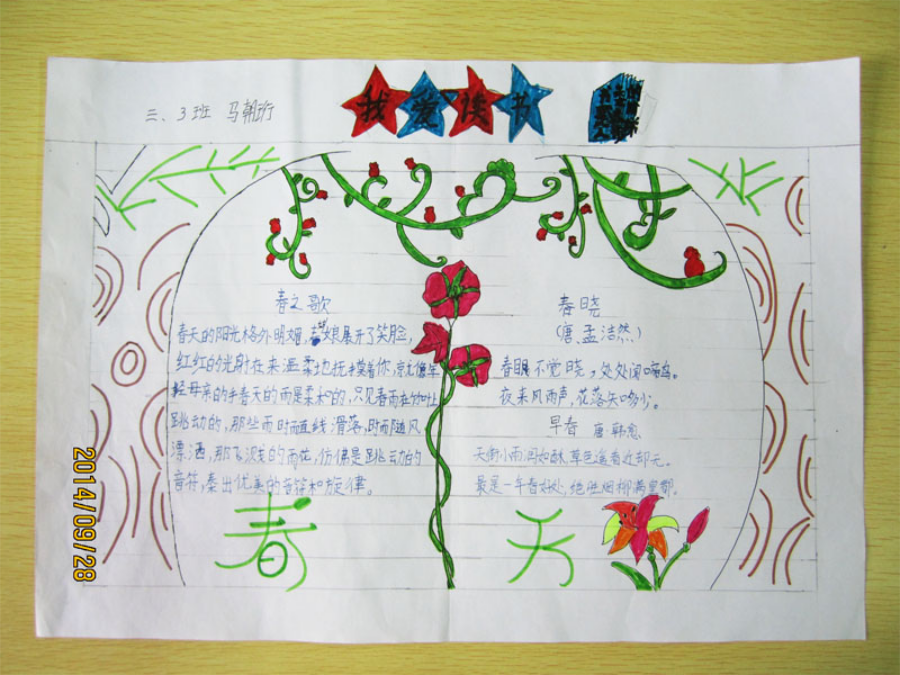 三、3班 马朝珩
我爱读书
春之歌
春天的阳光格外明媚,春姑娘展开了笑脸,
红红的光射在来温柔地抚摸着你,像年
轻母亲的手春天的雨是柔和的,只见春雨在竹叶上
跳动的,那些雨时而直线滑落,时而随风
漂洒,那飞溅的雨花,仿佛是跳动的
音符,奏出优美的音符和旋律。
春晓
(唐.孟洁然)
春眠不觉晓,处处闻啼鸟。
夜来风雨声,花落知多少。
早春 唐.韩愈
天街小雨润如酥,草色遥看近却无。
最是一年春好处,绝胜烟柳满皇都。
春天
2014/09/28